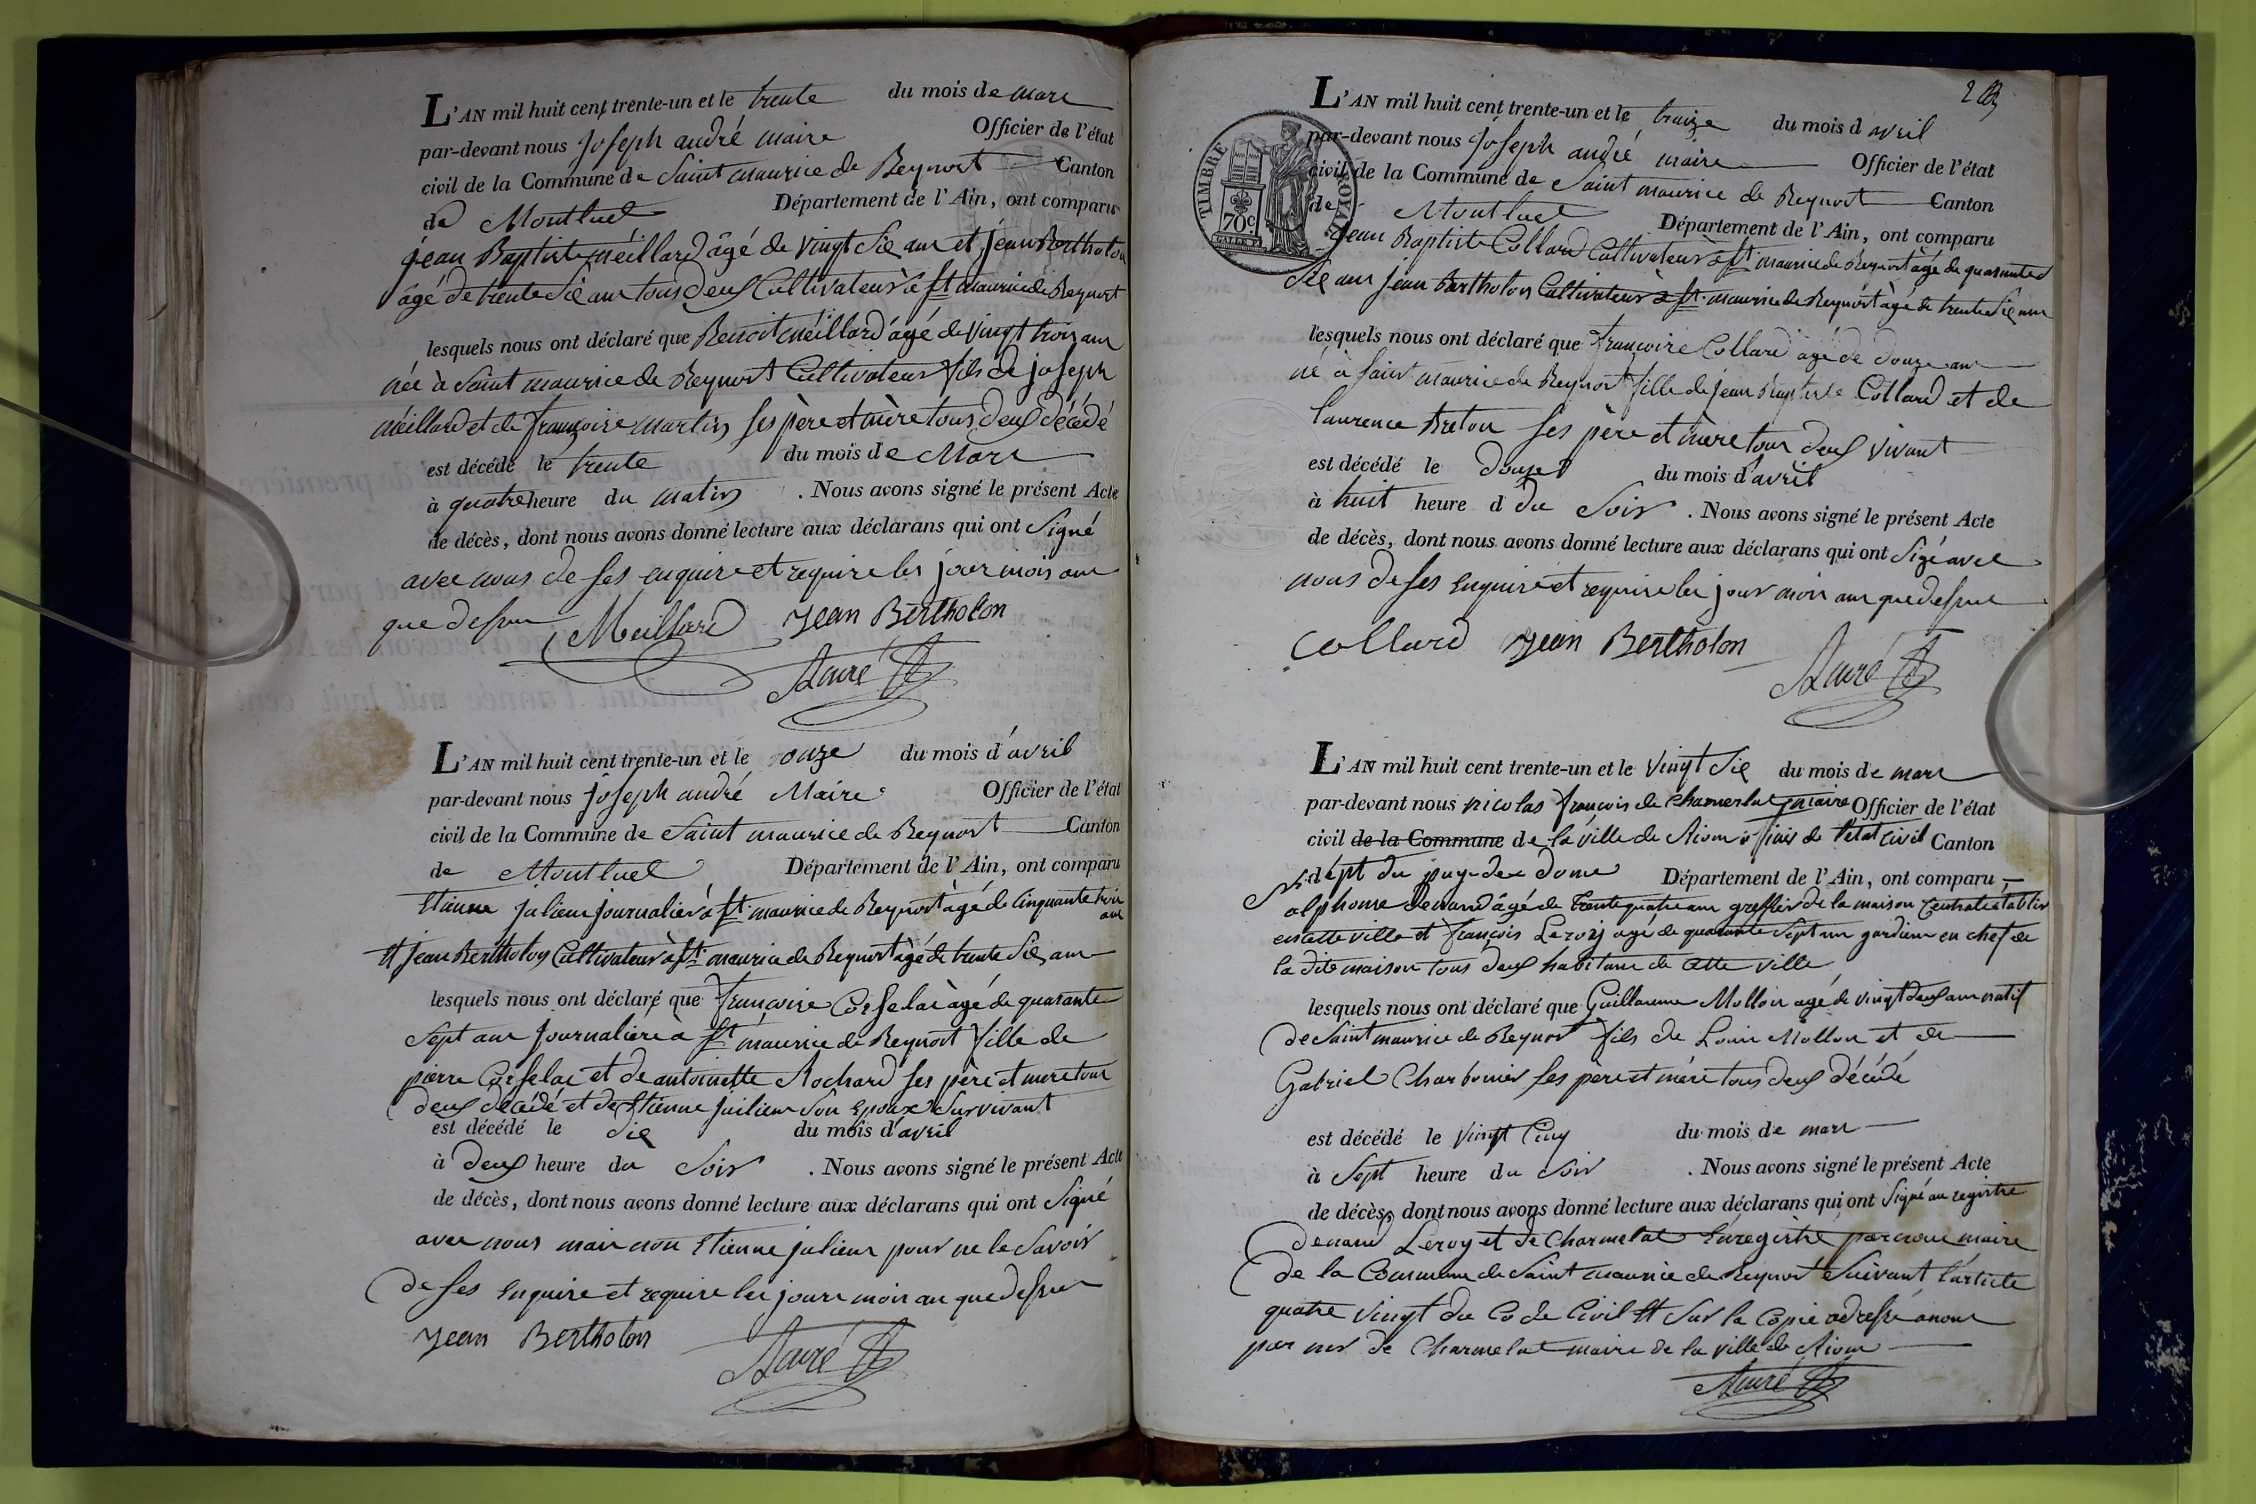 L'AN mil huit cent trente-un et le trente du mois de mars
par-devant nous joseph andré maire Officier de l'état
civil de la Commune de Saint maurice de Beynost Canton
de Montluel Département de l'Ain, ont comparu
jean Baptiste méillard âgé de vingt Six ans et jean Bertholon
âgé de trente Six ans tous deux Cultivateurs à St maurice de Beynost
lesquels nous ont déclaré que Benoit méillard âgé de vingt trois ans
née à Saint maurice de Beynost Cultivateur fils de joseph
méillard et de françoise martin ses père et mère tous deux décédé
est décédé le trente du mois de Mars
à quatre heure du matin . Nous avons signé le présent Acte
de décès, dont nous avons donné lecture aux déclarans qui ont Signé
avec nous de ses enquire et require les jour mois ans
que dessus Meillard Jean Bertholon
André
L'AN mil huit cent trente-un et le onze du mois d'avril
par-devant nous joseph andré Maire Officier de l'état
civil de la Commune de Saint maurice de Beynost Canton
de Montluel Département de l'Ain, ont comparu
Etienne julien journalier à St maurice de Beynost âgé de Cinquante trois
ans
Et jean Bertholon Cultivateur à St maurice de Beynost âgé de trente Six ans
lesquels nous ont déclaré que françoise Corselas âgé de quarante
Sept ans journaliere a St maurice de Beynost fille de
pierre Corselas et de antoinette Rochard ses père et mere tous
deux décédé et de Etienne juilien Son Epoux Survivant
est décédé le dix du mois d'avril
à deux heure du Soir . Nous avons signé le présent Acte
de décès, dont nous avons donné lecture aux déclarans qui ont Signé
avec nous mais non Etienne julien pour ne le Savoir
de ses Enquire et require les jours mois an que dessus
Jean Bertholon
André
L'AN mil huit cent trente-un et le treize du mois d avril
par-devant nous joseph andré maire Officier de l'état
civil de la Commune de Saint maurice de Beynost Canton
de Montluel Département de l'Ain, ont comparu
TIMBRE ROYAL
70c
jean Baptiste Collard Cultivateur à St maurice de Beynost âgé de quarante
Six ans jean Bertholon Cultivateur à St maurice de Beynost âgé de trente Six ans
lesquels nous ont déclaré que françoise Collard âgé de douze ans
né à Saint maurice de Beynost fille de jean Baptiste Collard et de
laurence Breton Ses père et mère tous deux vivant
est décédé le douze du mois d'avril
à huit heure d du Soir . Nous avons signé le présent Acte
de décès, dont nous avons donné lecture aux déclarans qui ont Signé avec
nous de ses Enquire et require les jour mois ans que dessus
collard Jean Bertholon
André
L'AN mil huit cent trente-un et le vingt Six du mois de mars
par-devant nous nicolas françois de Charmerlat maire Officier de l'état
civil de la Commune de la ville de Riom de l'état civil Canton
dépt du puy de dome Département de l'Ain, ont comparu
alphonse denard âgé de trente quatre ans greffier de la maison Centrale établie
en cette ville et françois Leroy agé de quarante Sept ans gardien en chef de
la dite maison tous deux habitans de cette ville
lesquels nous ont déclaré que Guillaume Mollon agé de vingt deux ans natif
de Saint maurice de Beynost fils de Louis Mollon et de
Gabriel Charbonnier ses père et mère tous deux décédé
est décédé le vingt Cinq du mois de mars
à Sept heure du Soir . Nous avons signé le présent Acte
de décès, dont nous avons donné lecture aux déclarans qui ont Signé au registre
denard Leroy et de Charmelat Enregistré par nous maire
de la Commune de Saint maurice de Beynost Suivant l'article
quatre vingt du Code Civil Et Sur la Copie adressé a nous
par mr de Charmelat maire de la ville de Riom
André